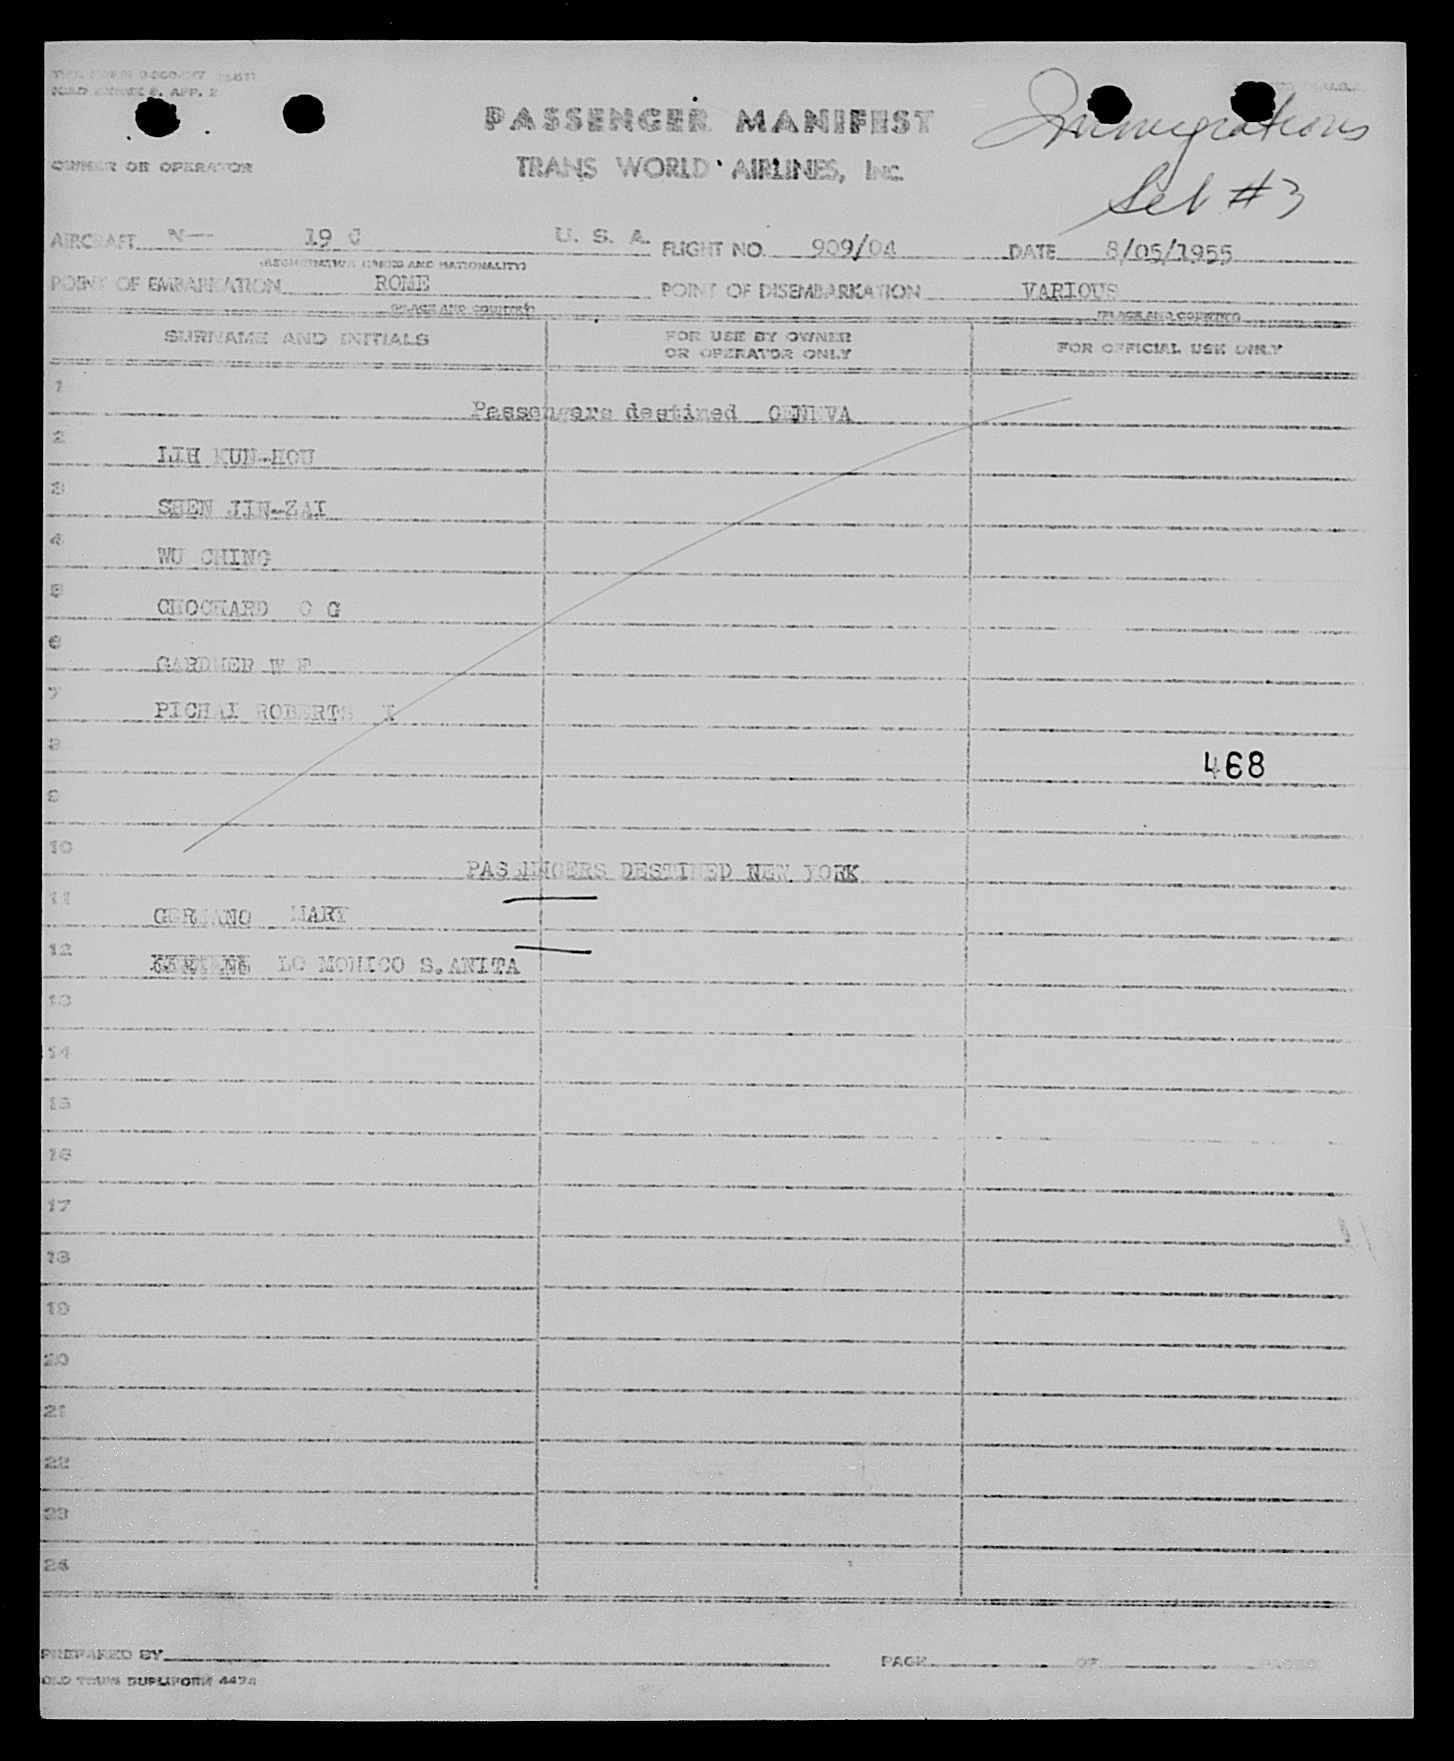 PASSENGER MANIFEST
Immigrations
OWNER OR OPERATOR
TRANS WORLD AIRLINES, Inc.
Set #3
AIRCRAFT N- 19 C U. S. A. FLIGHT NO. 909/04 DATE 8/05/1955
(REGISTRATION MARKS AND NATIONALITY)
POINT OF EMBARKATION ROME POINT OF DISEMBARKATION VARIOUS
(PLACE AND COUNTRY) (PLACE AND COUNTRY)
SURNAME AND INITIALS FOR USE BY OWNER OR OPERATOR ONLY FOR OFFICIAL USE ONLY
1 Passengers destined GENEVA
2 LIH KUN-HOU
3 SHEN JIN-ZAI
4 WU CHING
5 CHOCHARD C G
6 GARDNER W
7 PICHAI ROBERTS
8 468
9
10 PASSENGERS DESTINED NEW YORK
11 GERMANO MARY
12 LO MONICO S.ANITA
13
14
15
16
17
18
19
20
21
22
23
24
PREPARED BY PAGE OF PAGES